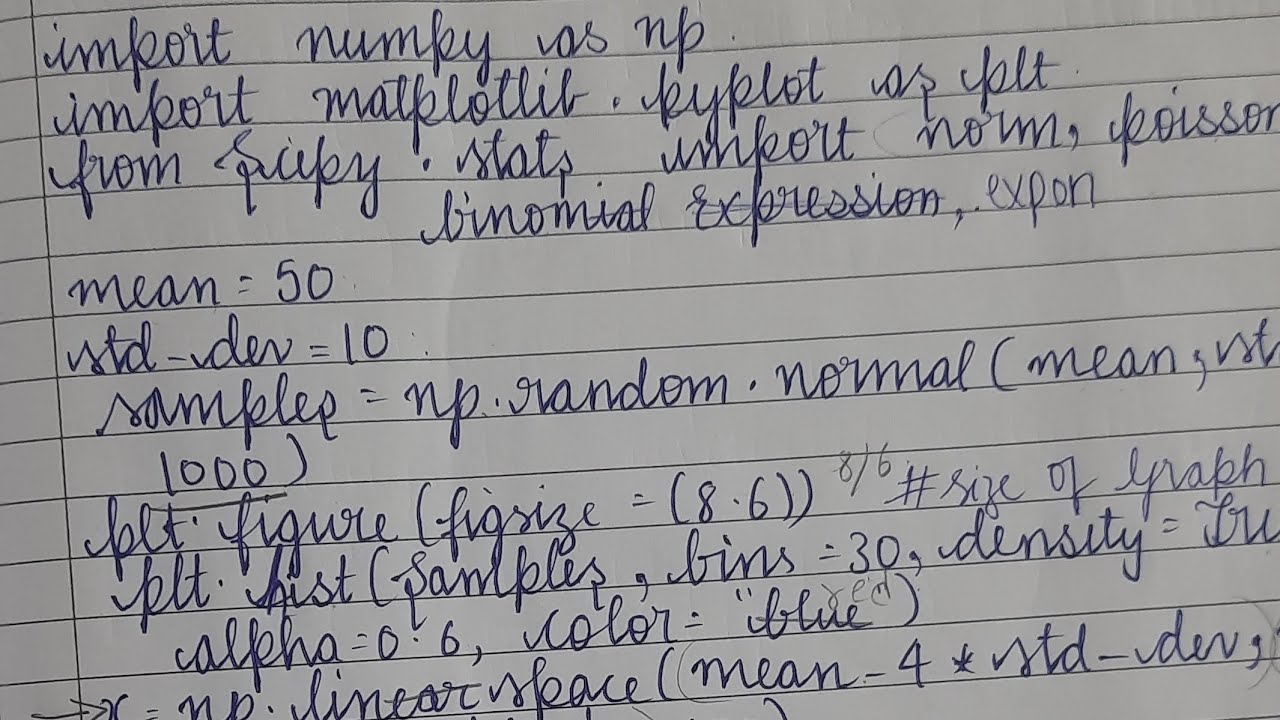 import numpy as np.
import matplotlib.pyplot as plt.
from scipy.stats import norm, poisson
binomial expression, expon
mean = 50
std-dev = 10
samples = np.random.normal(mean, st
1000)
plt.figure(figsize = (8.6)) 8/6 #size of graph
plt.hist(samples, bins = 30, density = Tru
alpha = 0.6, color = "blue") red
→ x = np.linearspace((mean - 4 * std-dev,